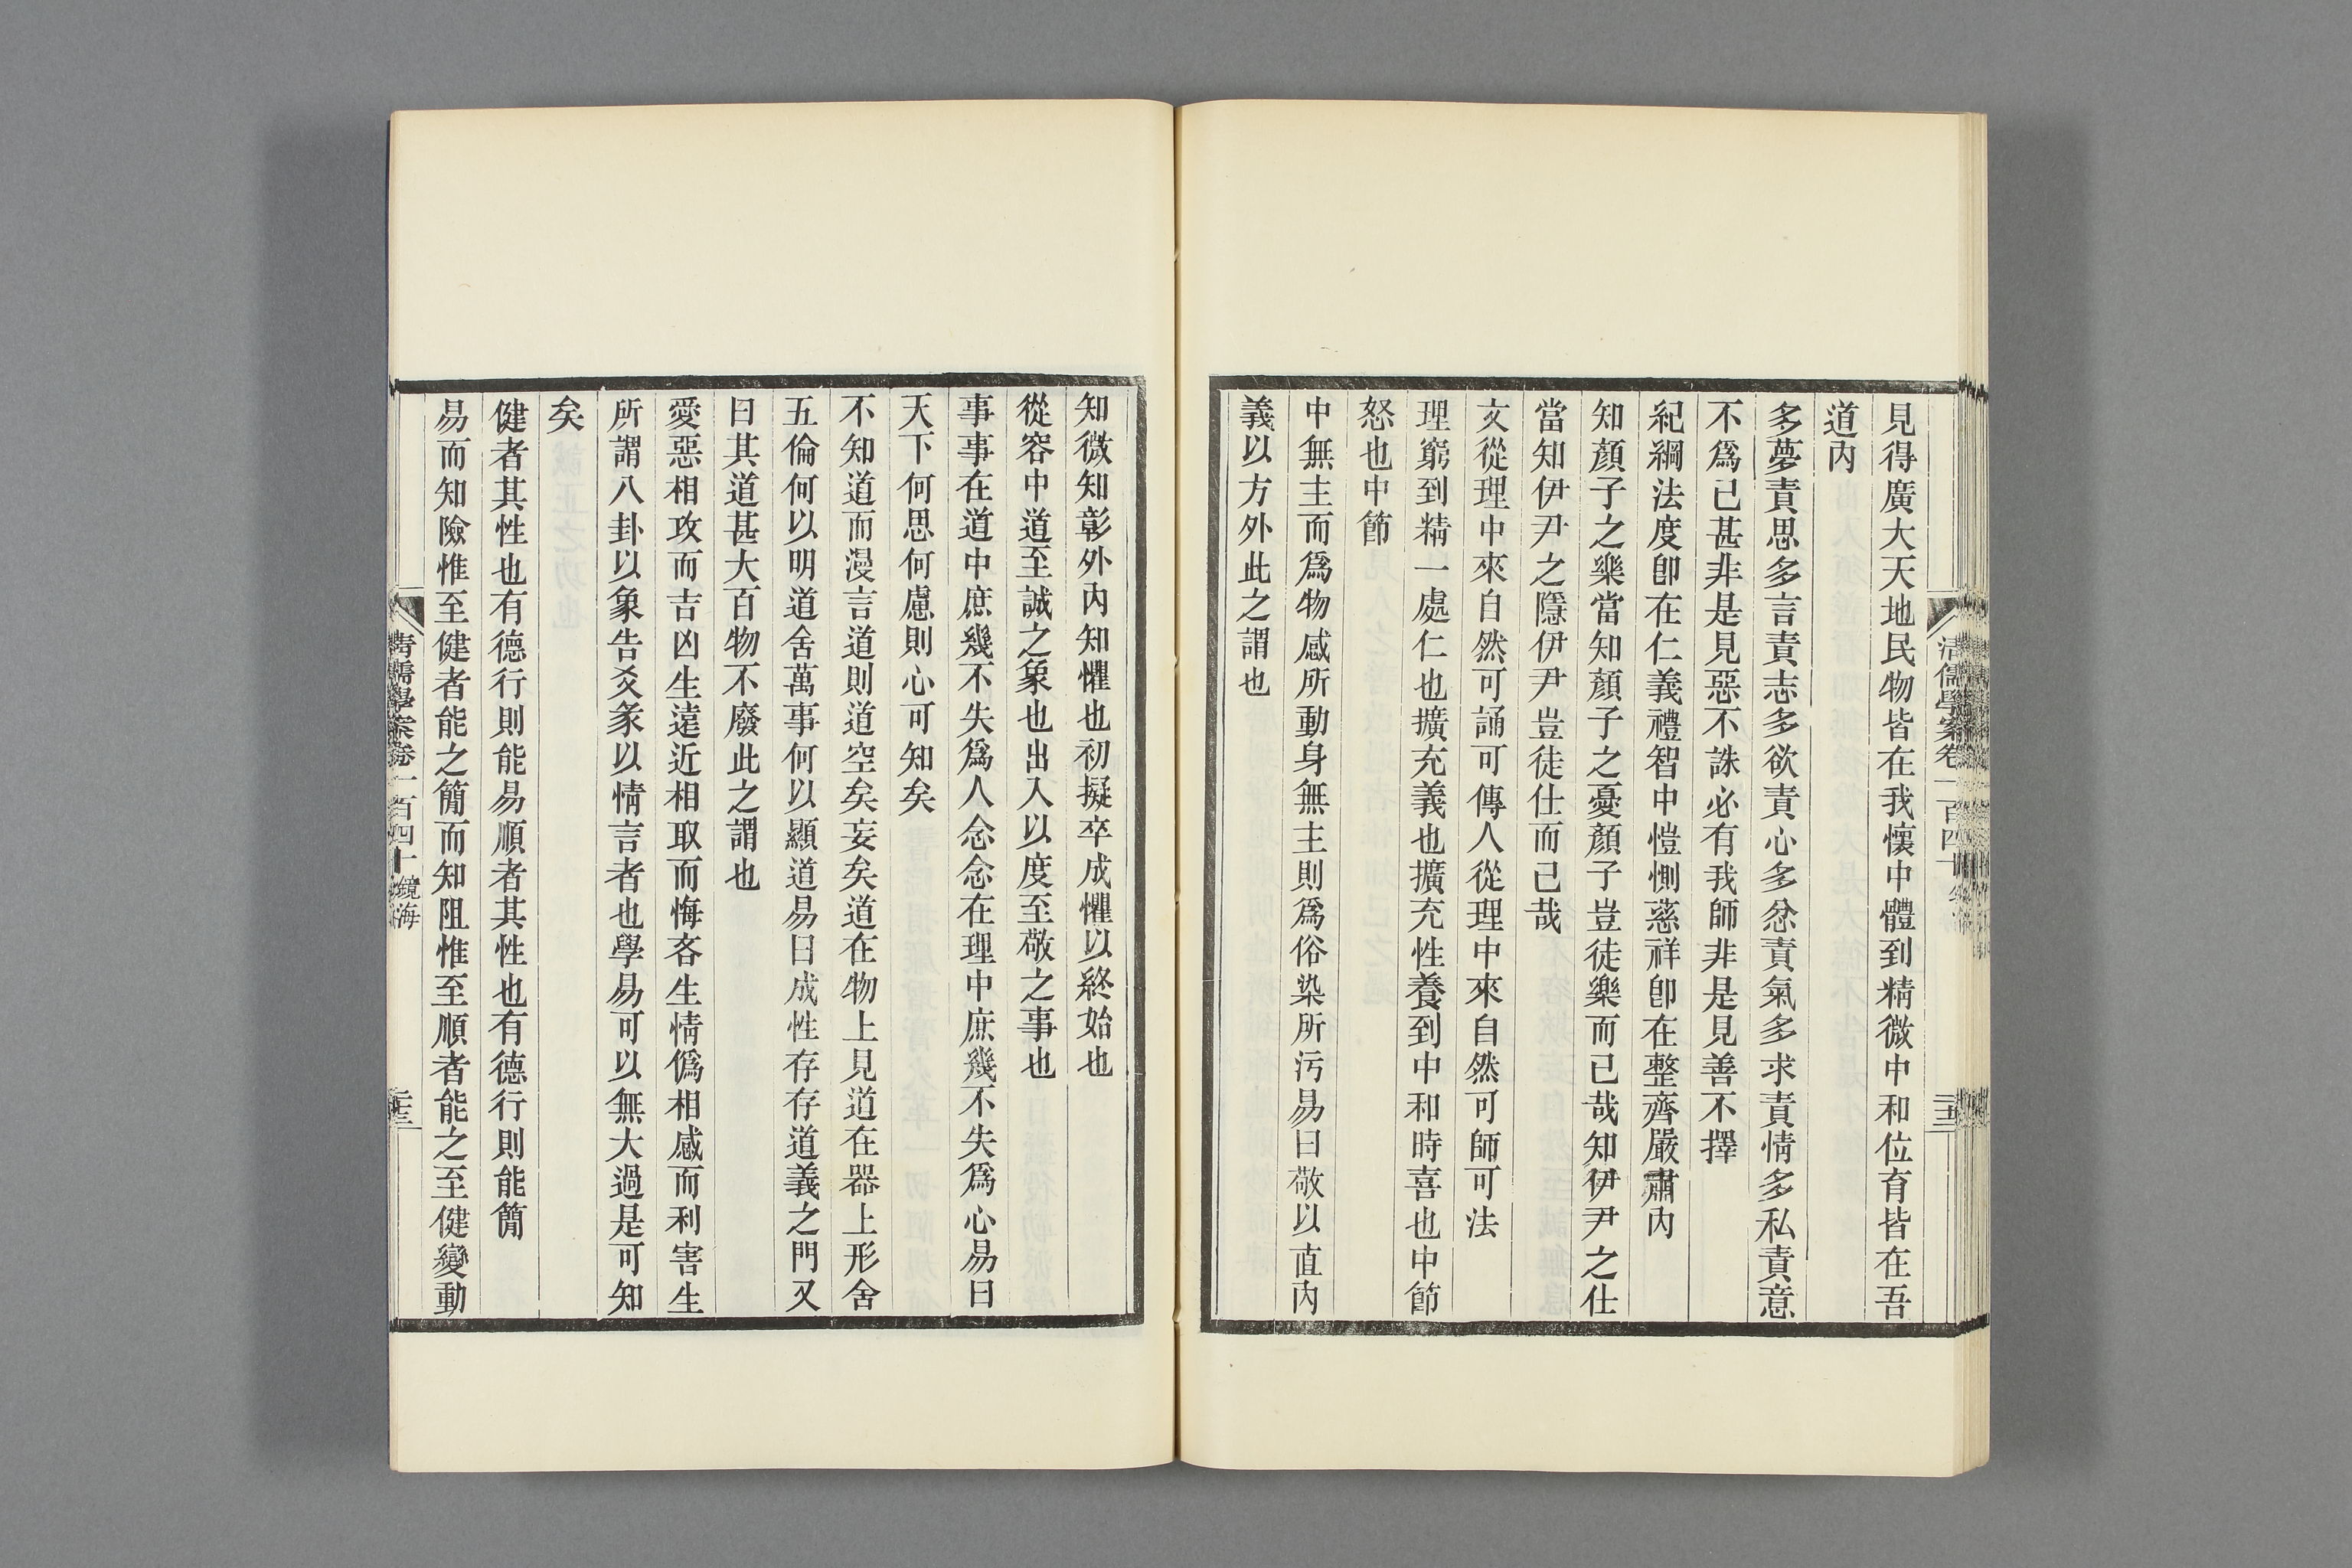 見得廣大天地民物皆在我懷中體到精微中和位育皆在吾
道內
多夢責思多言責志多欲責心多忿責氣多求責情多私責意
不爲已甚非是見惡不誅必有我師非是見善不擇
紀綱法度卽在仁義禮智中愷惻慈祥卽在整齊嚴肅內
知顏子之樂當知顏子之憂顏子豈徒樂而已哉知伊尹之仕
當知伊尹之隱伊尹豈徒仕而已哉
文從理中來自然可誦可傳人從理中來自然可師可法
理窮到精一處仁也擴充義也擴充性養到中和時喜也中節
怒也中節
中無主而爲物感所動身無主則爲俗染所污易曰敬以直內
義以方外此之謂也
知微知彰外內知懼也初擬卒成懼以終始也
從容中道至誠之象也出入以度至敬之事也
事事在道中庶幾不失爲人念念在理中庶幾不失爲心易曰
天下何思何慮則心可知矣
不知道而漫言道則道空矣妄矣道在物上見道在器上形舍
五倫何以明道舍萬事何以顯道易曰成性存存道義之門又
曰其道甚大百物不廢此之謂也
愛惡相攻而吉凶生遠近相取而悔吝生情僞相感而利害生
所謂八卦以象告爻彖以情言者也學易可以無大過是可知
矣
健者其性也有德行則能易順者其性也有德行則能簡
易而知險惟至健者能之簡而知阻惟至順者能之至健變動
清儒學案卷一百四十 鏡海
二十三